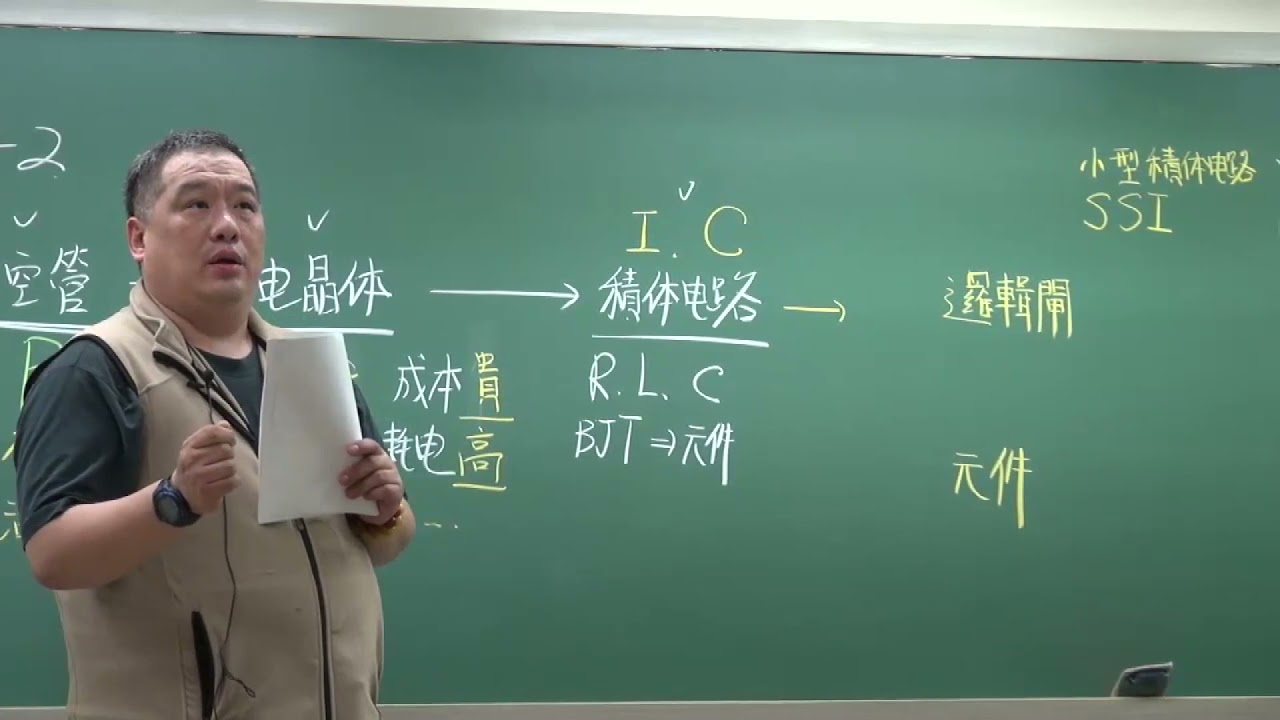 -2
小型積体电路
SSI
I.C
空管
电晶体
積体电路
邏輯閘
成本貴
R.L.C
耗电高
BJT⇒元件
元件